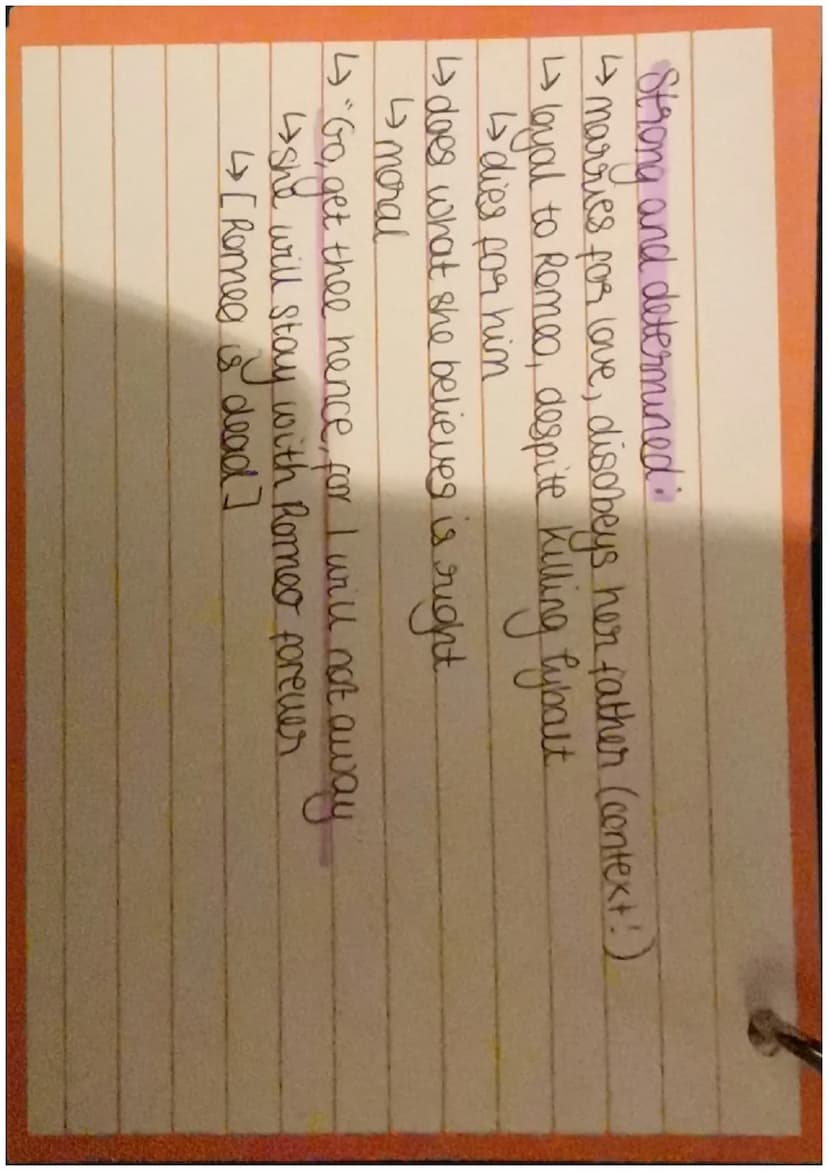 Strong and determined:
↳ marries for love, disobeys her father (context!)
↳ loyal to Romeo, despite killing Tybalt
↳ dies for him
↳ does what she believes is right
↳ moral
↳ "Go, get thee hence, for I will not away
↳ she will stay with Romeo forever
↳ [Romeo is dead]